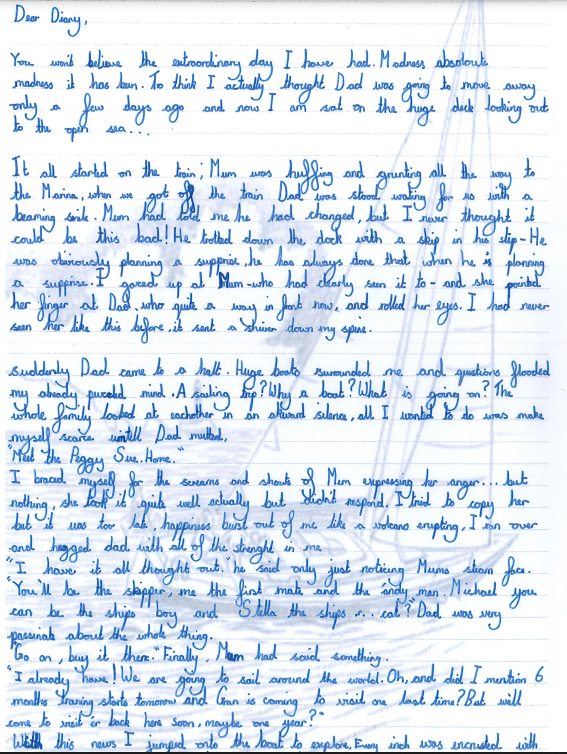 Dear Diary,
You won't believe the extraordinary day I have had. Madness absolute
madness it has been. To think I actually thought Dad was going to move away
only a few days ago and now I am sat on the huge deck looking out
to the open sea...
It all started on the train; Mum was huffing and grunting all the way to
the Marina, when we got off the train Dad was stood waiting for us with a
beaming smile. Mum had told me he had changed, but I never thought it
could be this bad! He trotted down the dock with a skip in his step-He
was obviously planning a supprise, he has always done that when he is planning
a supprise. I gazed up at Mum-who had clearly seen it to-and she pointed
her finger at Dad, who quite a way in font now, and rolled her eyes. I had never
seen her like this before, it sent a shiver down my spine.
suddenly Dad came to a halt. Huge boats surounded me and questions flooded
my already puzzeld mind. A sailing trip? Why a boat? What is going on? The
whole family looked at eachother in an akward silence, all I wanted to do was make
myself scarce untill Dad mutted,
"Meet the Peggy Sue. Home."
I braced myself for the screams and shouts of Mum expressing her anger... but
nothing, she took it quite well actually but didn't respond, I tried to copy her
but it was too late, happiness burst out of me like a volcano erupting, I ran over
and hugged dad with all of the strenght in me
"I have it all thought out." he said only just noticing Mums stern face.
"You'll be the skipper, me the first mate and the andy man. Michael you
can be the ships boy and Stella the ships r... cat?" Dad was very
passinate about the whole thing.
"Go on, buy it then." Finally, Mum had said something.
"I already have! We are going to sail around the world. Oh, and did I mention 6
months traning starts tomorrow and Gran is coming to visit one last time? But will
come to visit er back here soon, maybe one year?"
With this news I jumped onto the boat to explore, Every inch was encrusted with